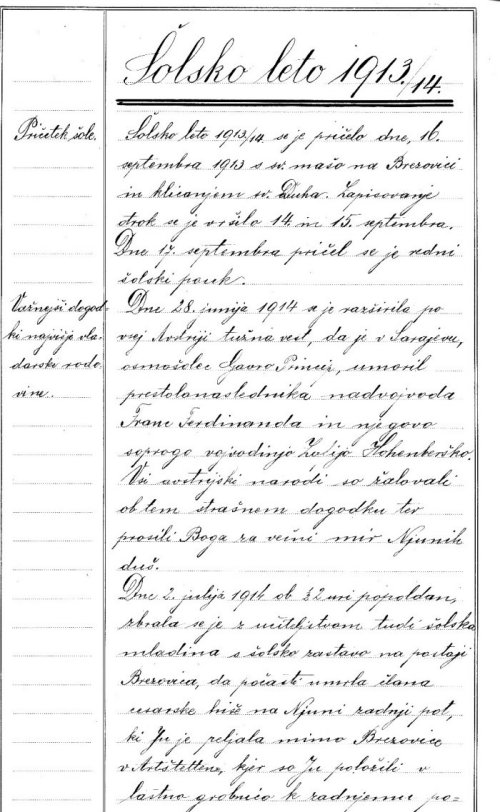 Šolsko leto 1913./14.
Pričetek šole.
Šolsko leto 1913/14. se je pričelo dne, 16.
septembra 1913 s sv. mašo na Brezovici
in klicanjem sv. Duha. Zapisovanje
otrok se je vršilo 14. in 15. septembra.
Dne 17. septembra pričel se je redni
šolski pouk.
Važnejši dogod-
ki najvišje vla-
darske rodo-
vine.
Dne 28. junija 1914 se je razširila po
vsej Avstriji tužna vest, da je v Sarajevu,
osmošolec Gavro Princip, umoril
prestolonaslednika nadvojvoda
Franc Ferdinanda in njegovo
soprogo vojvodinjo Zofijo Hohenberško.
Vsi avstrijski narodi so žalovali
ob tem strašnem dogodku ter
prosili Boga za večni mir Njunih
duš.
Dne 2. julija 1914 ob ½2 uri popoldan,
zbrala se je z učiteljstvom tudi šolska
mladina s šolsko zastavo na postaji
Brezovica, da počasti umrla člana
cesarske hiše na Njuni zadnji pot,
ki Ju je peljala mimo Brezovice
v Artstetten, kjer so Ju položili v
lastno grobnico k zadnjemu po-